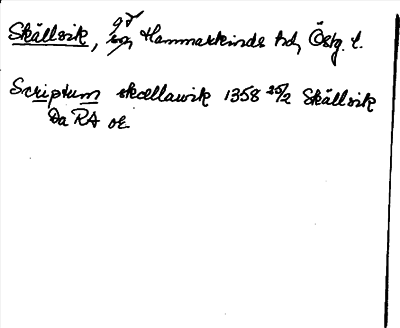 Skällvik, gd Hammarkinds hd, Östg. l.
Scriptum skællawik 1358 25/2 Skällvik
Da RA or.